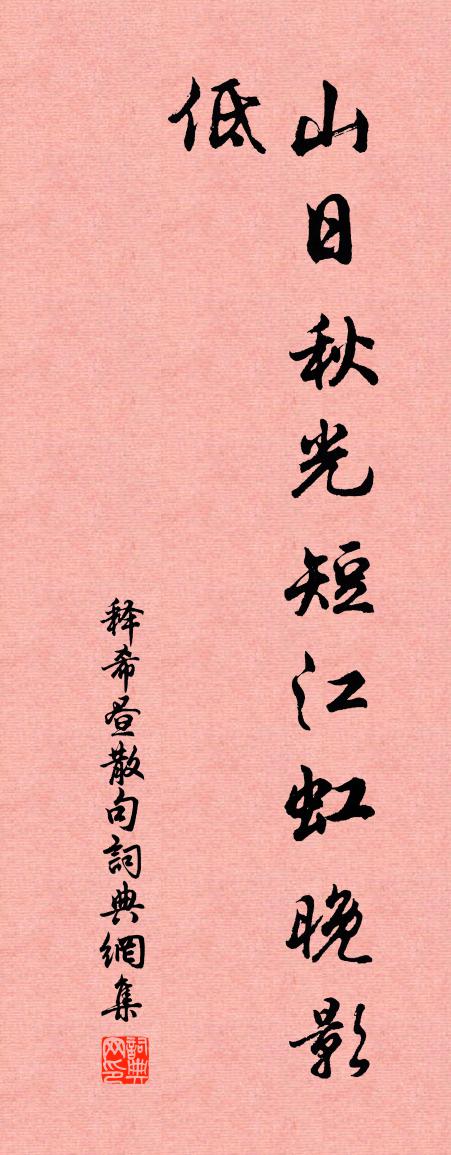 山日秋光短江虹晚影
低
释希昼散句詞典網集
詞典网印